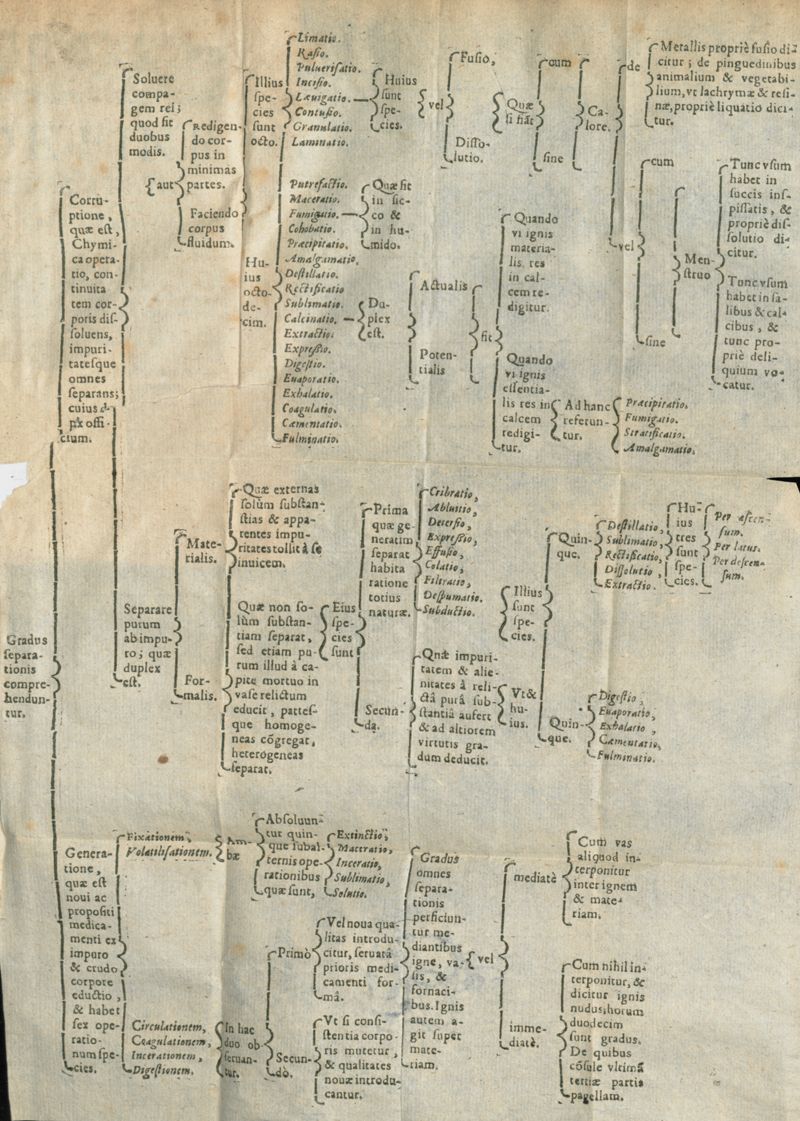 Gradus
ſepara-
tionis
compre-
hendun-
tur.
Corru-
ptione,
quæ eſt,
Chymi-
ca opera-
tio, con-
tinuita
tem cor-
poris diſ-
ſoluens,
impuri-
tateſque
omnes
ſeparans;
cuius
offi-
cium.
Soluere
compa-
gem rei;
quod fit
duobus
modis.
aut
Redigen-
do cor-
pus in
minimas
partes.
Faciendo
corpus
fluidum.
Illius
ſpe-
cies
ſunt
octo.
Limatio.
Raſio.
Puluerifatio.
Inciſio.
Læuigatio.
Contuſio.
Granulatio.
Laminatio.
Huius
ſunt
ſpe-
cies.
vel
Fuſio,
Diſſo-
lutio.
Quæ
ſi fiāt
cum
ſine
Ca-
lore.
de
vel
Metallis propriè fuſio di-
citur; de pinguedinibus
animalium & vegetabi-
lium, vt lachrymæ & reſi-
næ, propriè liquatio dici-
tur.
cum
ſine
Men-
ſtruo
Tunc vſum
habet in
ſuccis inſ-
piſſatis, &
propriè diſ-
ſolutio di-
citur.
Tunc vſum
habet in ſa-
libus & cal-
cibus, &
tunc pro-
priè deli-
quium vo-
catur.
Hu-
ius
octo-
de-
cim.
Putrefactio.
Maceratio.
Fumigatio.
Cohobatio.
Præcipitatio.
Amalgamatio.
Deſtillatio.
Rectificatio
Sublimatio.
Calcinatio.
Extractio.
Expreſſio.
Digeſtio.
Euaporatio.
Exhalatio.
Coagulatio.
Cæmentatio.
Fulminatio.
Quæ fit
in ſic-
co &
in hu-
mido.
Du-
plex
eſt.
Actualis
Poten-
tialis
fit
Quando
vi ignis
materia-
lis res
in cal-
cem re-
digitur.
Quando
vi ignis
eſſentia-
lis res in
calcem
redigi-
tur.
Ad hanc
referun-
tur.
Præcipitatio.
Fumigatio.
Stratificatio.
Amalgamatio.
Separare
purum
ab impu-
ro; quæ
duplex
eſt.
Mate-
rialis.
For-
malis.
Quæ externas
ſolùm ſubſtan-
tias & appa-
rentes impu-
ritates tollit à ſe
inuicem.
Quæ non ſo-
lùm ſubſtan-
tiam ſeparat,
ſed etiam pu-
rum illud à ca-
pite mortuo in
vaſe relictum
educit, parteſ-
que homoge-
neas cōgregat,
heterogeneas
ſeparat.
Eius
ſpe-
cies
ſunt
Prima
quæ ge-
neratim
ſeparat
habita
ratione
totius
naturæ.
Secun-
da.
Cribratio,
Ablutio,
Deterſio,
Expreſſio,
Effuſio,
Colatio,
Filtratio,
Deſpumatio.
Subductio.
Quæ impuri-
tatem & alie-
nitates à reli-
ctâ purâ ſub-
ſtantiâ aufert
& ad altiorem
virtutis gra-
dum deducit.
Illius
ſunt
ſpe-
cies.
Vt &
hu-
ius.
Quin-
que.
Quin-
que.
Deſtillatio,
Sublimatio,
Rectificatio,
Diſſolutio
Extractio.
Hu-
ius
tres
ſunt
ſpe-
cies.
Per aſcen-
ſum.
Per latus.
Per deſcen-
ſum.
Digeſtio,
Euaporatio,
Exhalatio,
Cæmentatio,
Fulminatio.
Genera-
tione,
quæ eſt
noui ac
propoſiti
medica-
menti ex
impuro
& crudo
corpore
eductio,
& habet
ſex ope-
ratio-
num ſpe-
cies.
Fixationem,
Volatiliſationem.
Am-
bæ
Abſoluun-
tur quin-
que ſubal-
ternis ope-
rationibus
quæ ſunt,
Extinctio,
Maceratio,
Inceratio,
Sublimatio,
Solutio.
Circulationem,
Coagulationem,
Incerationem,
Digeſtionem.
In hac
duo ob-
ſeruan-
tur.
Primò
Secun-
dò.
Vel noua qua-
litas introdu-
citur, ſeruatâ
prioris medi-
camenti for-
mâ.
Vt ſi conſi-
ſtentia corpo-
ris mutetur,
& qualitates
nouæ introdu-
cantur.
Gradus
omnes
ſepara-
tionis
perficiun-
tur me-
diantibus
igne, va-
ſis, &
fornaci-
bus. Ignis
autem a-
git ſuper
mate-
riam.
vel
mediatè
imme-
diatè.
Cum vas
aliquod in-
terponitur
inter ignem
& mate-
riam.
Cum nihil in-
terponitur, &
dicitur ignis
nudus; horum
duodecim
ſunt gradus.
De quibus
cōſule vltimā
tertiæ partis
pagellam.